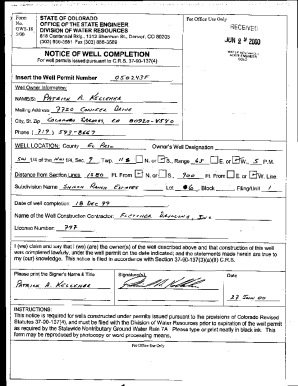 Form
No.
GWS-19
5/00
STATE OF COLORADO
OFFICE OF THE STATE ENGINEER
DIVISION OF WATER RESOURCES
818 Centennial Bldg., 1313 Sherman St., Denver, CO 80203
(303) 866-3581 Fax (303) 866-3589
For Office Use Only
RECEIVED
JUN 2 2000
NOTICE OF WELL COMPLETION
For well permits issued pursuant to C.R.S. 37-90-137(4)
Insert the Well Permit Number 050243F
Well Owner Information:
NAME(S) PATRICK A. KELLEHER
Mailing Address 7720 CONIFER DRIVE
City, St. Zip COLORADO SPRINGS, CO 80920-
Phone (719) 593-8667
WELL LOCATION: County EL PASO Owner's Well Designation
SW 1/4 of the 1/4, Sec. 9 Twp. 11 N. or S., Range 65 E. or W. 6 P.M.
Distance from Section Lines 1880 Ft. From N. or S., 900 Ft. From E. or W. Line
Subdivision Name RANCH ESTATES Lot 6, Block Filing/Unit 1
Date of well completion 18 DEC 99
Name of the Well Construction Contractor: FLETCHER DRILLING, INC
License Number 797
I (we) claim and say that I (we) am (are) the owner(s) of the well described above and that construction of this well
was completed lawfully, under the well permit, on the date indicated; and the statements made herein are true to
my (our) knowledge. This notice is filed in accordance with Section 37-90-137(3)(a)(II) C.R.S.
Please print the Signer's Name & Title Signature(s) Date
PATRICK A. KELLEHER
27 JUN 00
INSTRUCTIONS:
This notice is required for wells constructed under permits issued pursuant to the provisions of Colorado Revised
Statutes 37-90-137(4), and must be filed with the Division of Water Resources prior to expiration of the well permit
as required by the Statewide Nontributary Ground Water Rule 7A. Please type or print neatly in black ink. This
form may be reproduced by photocopy or word processing means.
For Office Use Only